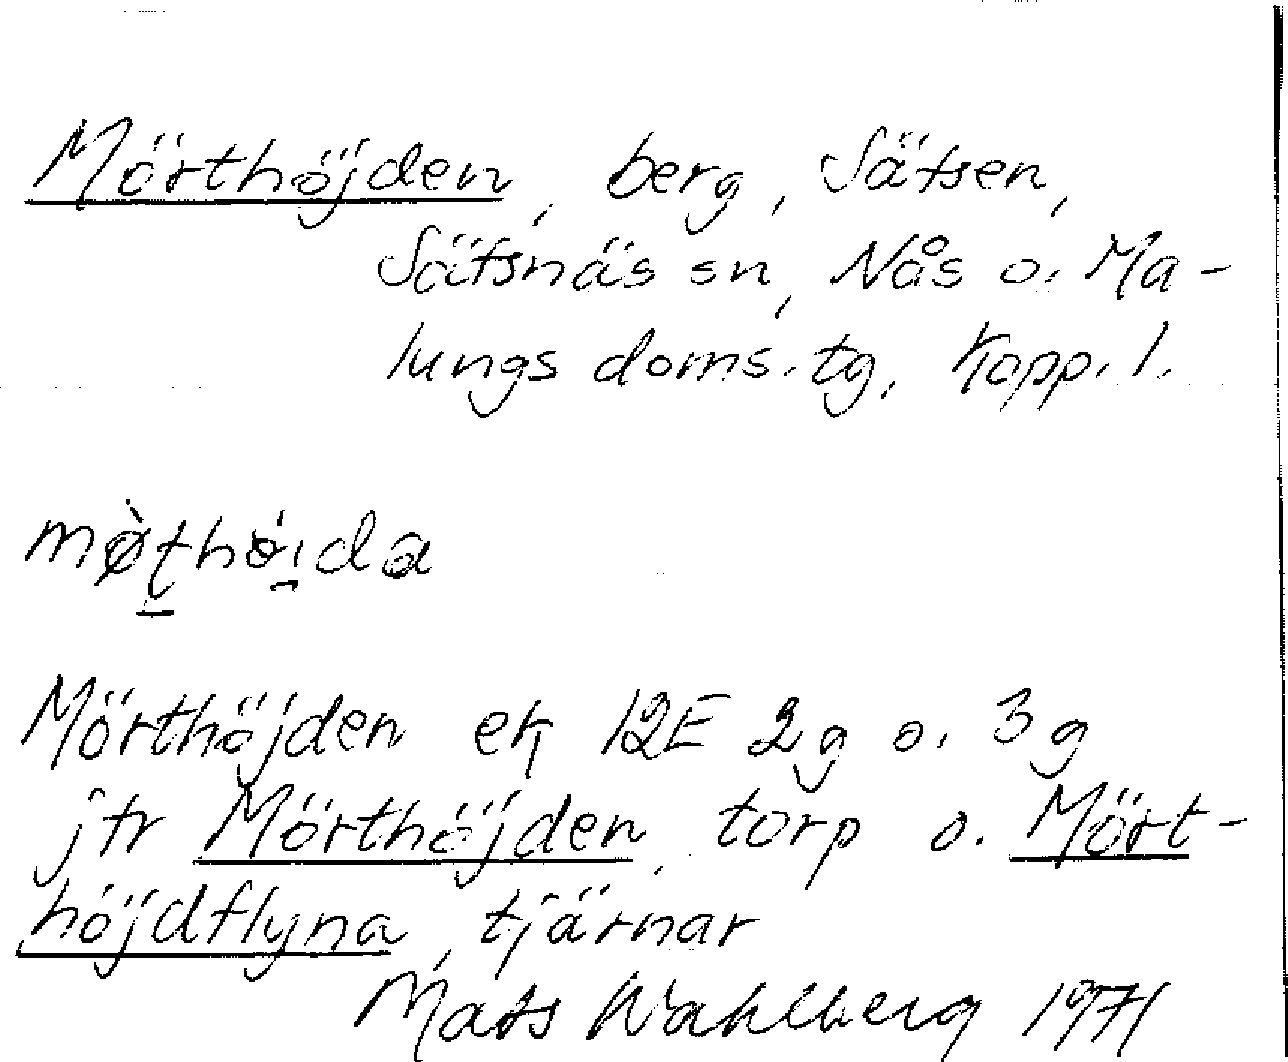 Mörthöjden, berg, Sätsen,
Sätsnäs sn, Nås o. Ma-
lungs doms. tg, Kopp. l.
mø̀ʈhø̀i̯da
Mörthöjden ek 12E 2g o. 3g
jfr Mörthöjden, torp o. Mört-
höjdflyna, tjärnar
Mats Wahlberg 1971